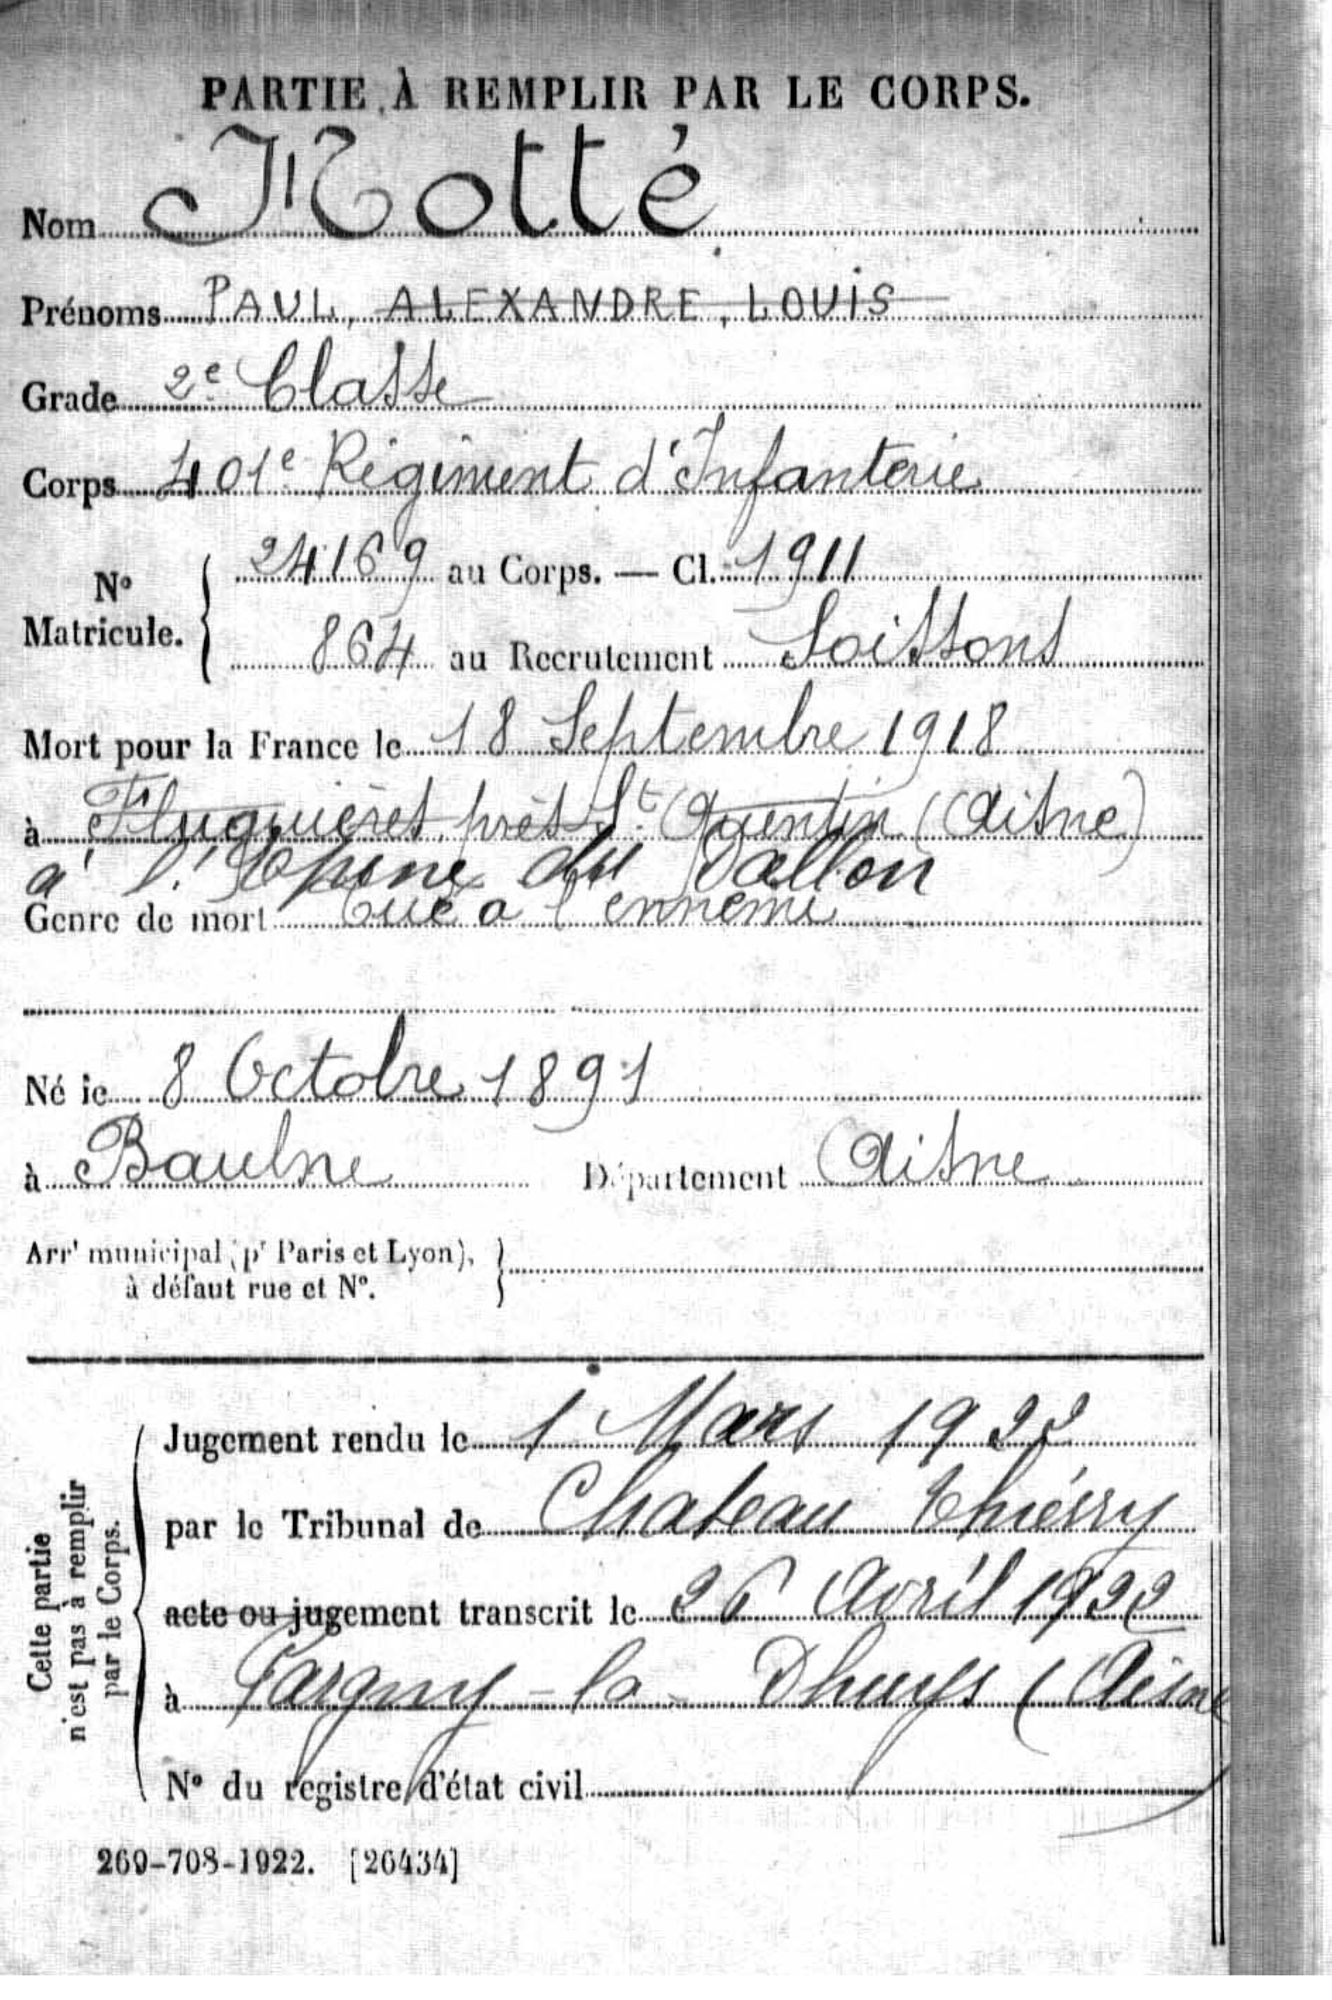 PARTIE À REMPLIR PAR LE CORPS.
Nom Motté
Prénoms PAUL, ALEXANDRE, LOUIS
Grade 2e Classe
Corps 401e Régiment d'Infanterie
No Matricule. { 24169 au Corps. — Cl. 1911
864 au Recrutement Soissons
Mort pour la France le 18 Septembre 1918
à Fluquières près St Quentin (Aisne)
à l'Epine du Dallon
Genre de mort Tué à l'ennemi
Né le 8 Octobre 1891
à Baulne Département Aisne
Arrt municipal (pr Paris et Lyon), à défaut rue et No. }
Cette partie n'est pas à remplir par le Corps.
Jugement rendu le 1 Mars 1922
par le Tribunal de Chateau Thiérry
acte ou jugement transcrit le 26 Avril 1922
à Pargny-la-Dhuys (Aisne)
No du registre d'état civil
269-708-1922. [26434]